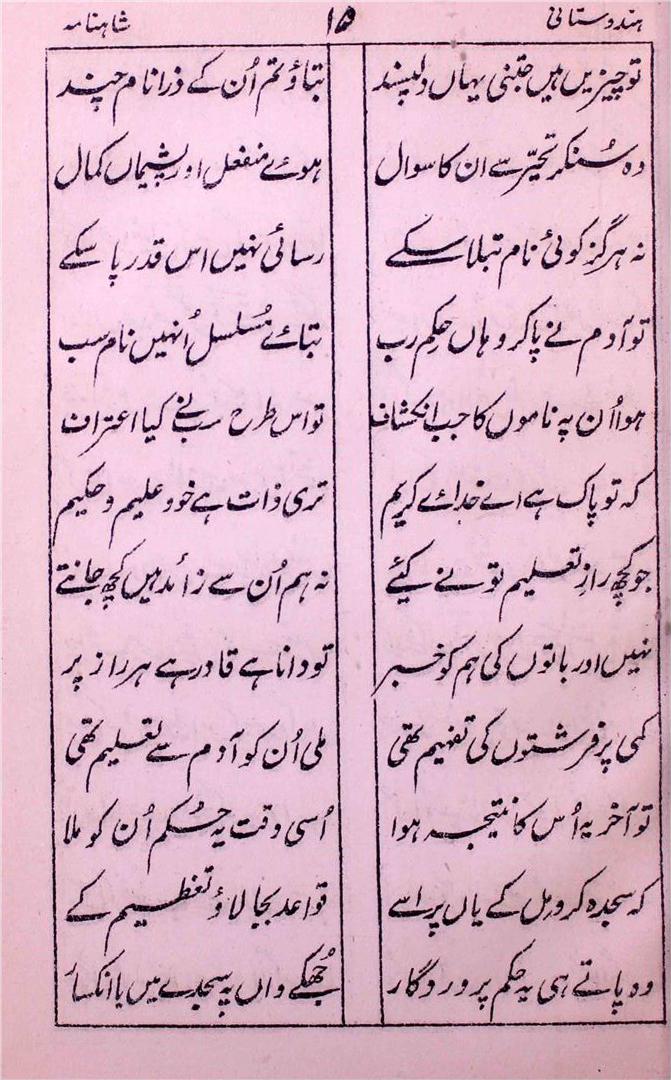 ہندوستانی ۱۵ شاہنامہ
تو چیزیں ہیں جتنی یہاں دلپسند بتاؤ تم اُن کے ذرا نام چند
وہ سُنکر تحیّر سے ان کا سوال ہوئے منفعل اور پشیماں کمال
نہ ہرگز کوئی نام بتلا سکے رسائی نہیں اس قدر پا سکے
تو آدم نے پا کر وہاں حکمِ رب بتائے مُسلسل اُنہیں نام سب
ہوا اُن پہ ناموں کا جب انکشاف تو اس طرح سبنے کیا اعتراف
کہ تو پاک ہے اے خدائے کریم تری ذات ہے خود علیم و حکیم
جو کچھ رازِ تعلیم تو نے کیئے نہ ہم اُن سے زائد ہیں کچھ جانتے
نہیں اور باتوں کی ہم کو خبر تو دانا ہے قادر ہے ہر راز پر
کمی پر فرشتوں کی تفہیم تھی ملی اُن کو آدم سے تعلیم تھی
تو آخر یہ اُس کا نتیجہ ہوا اُسی وقت یہ حُکم اُن کو ملا
کہ سجدہ کرو مِل کے یاں پر اسے قواعد بجا لاؤ تعظیم کے
وہ پاتے ہی یہ حکم پروردگار جُھکے واں پہ سجدے میں با انکسار